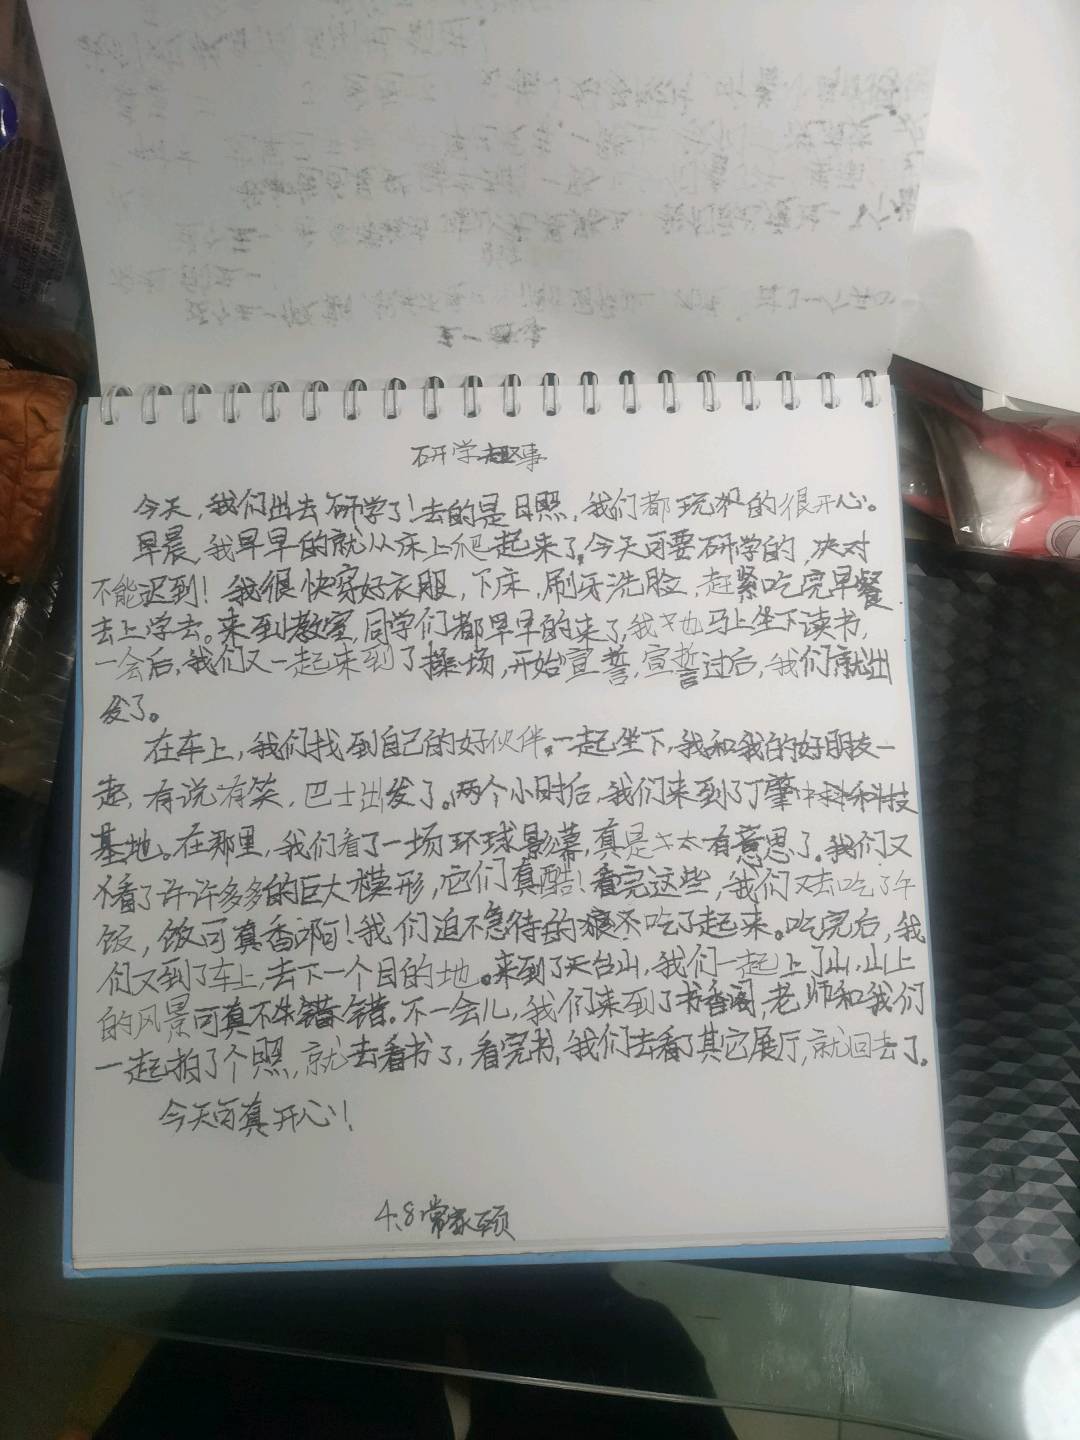 研学趣事
今天,我们出去研学了!去的是日照,我们都玩的很开心。
早晨,我早早的就从床上爬起来了,今天可要研学的,决对
不能迟到!我很快穿好衣服,下床,刷牙洗脸,赶紧吃完早餐
去上学去。来到教室,同学们都早早的来了,我也马上坐下读书,
一会后,我们又一起来到了操场,开始宣誓,宣誓过后,我们就出
发了。
在车上,我们找到自己的好伙伴,一起坐下,我和我的好朋友一
起,有说有笑,巴士出发了。两个小时后,我们来到了丁肇中科技
基地。在那里,我们看了一场环球影幕,真是太有意思了。我们又
看了许许多多的巨大模形,它们真酷!看完这些,我们又去吃了午
饭,饭可真香啊!我们迫不急待的吃了起来。吃完后,我
们又到了车上,去下一个目的地。来到了天台山,我们一起上了山,山上
的风景可真不错。不一会儿,我们来到了书香阁,老师和我们
一起拍了个照,就去看书了,看完书,我们去看了其它展厅,就回去了。
今天可真开心!
4.8常家硕